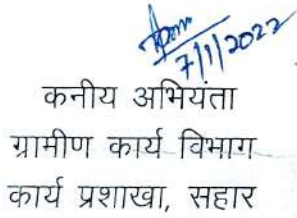 7/1/2022
कनीय अभियंता
ग्रामीण कार्य विभाग
कार्य प्रशाखा, सहार